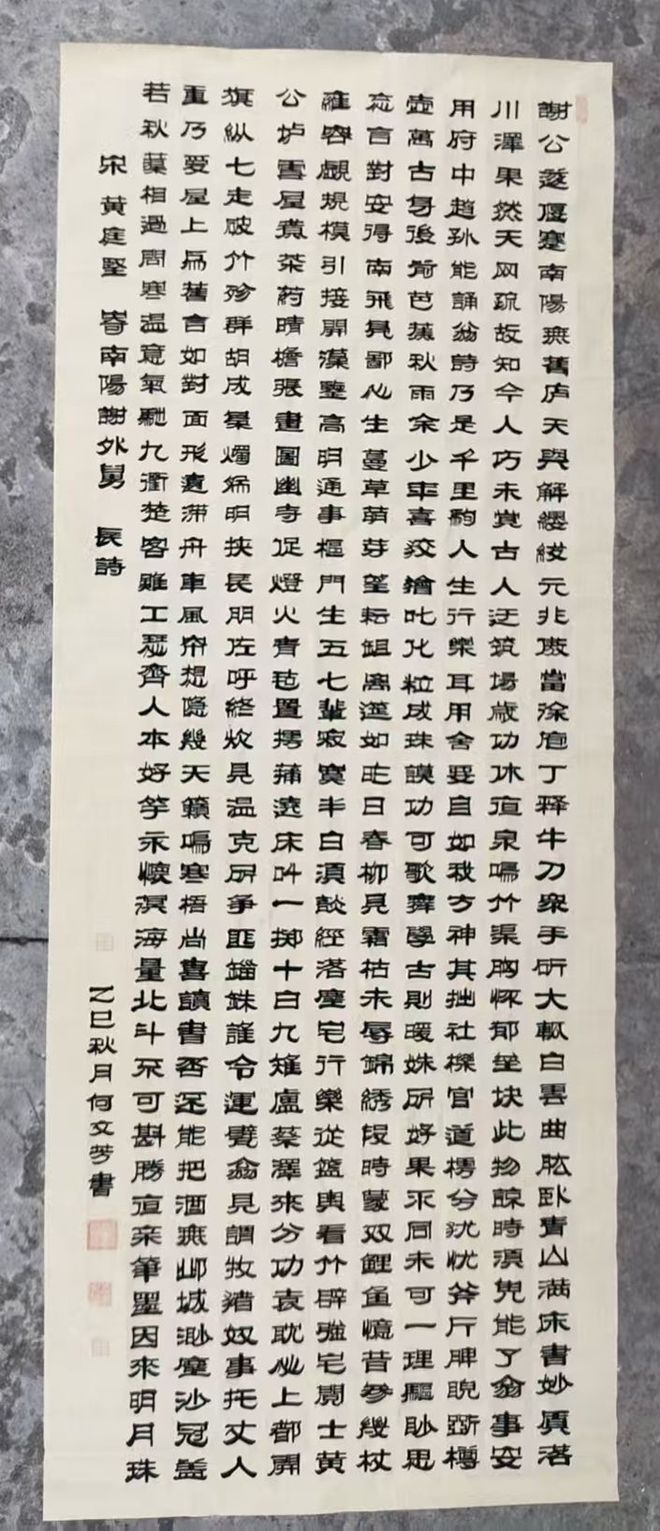 謝公遂偃蹇南陽無舊庐天與解纓紱元非傲當涂庖丁释牛刀衆手斫大觚白雲曲肱卧青山满床書妙質落
川澤果然天网疏故知今人巧未覺古人迂筑場歲功休夜泉鳴竹渠胸怀郁塁块此物諒時須兒能了翁事安
用府中趋孙能誦翁詩乃是千里駒人生行樂耳用舍要自如我方神其拙社櫟官道樗兮忧斧斤脾睨斵樽
壺萬古身後前芭蕉秋雨余少年喜文繪吐化粒成珠謨功可歌舞學古則暖姝所好果不同未可一理驅眇思
忘言對安得南飛凫鄙心生蔓草萌芽望耘鉏离筵如昨日春柳見霜枯未辱錦綉段時蒙双鲤鱼憶昔参幾杖
雍容覷規模引接開漠塹高明通事樞門生五七輩寂寞半白須談經落麈毛行樂從籃輿看竹辟彊宅闚士黄
公炉雪屋煮茶药晴檐張畫圖幽寺促燈火青毡置樗蒱遶床叫一擲十白九雉盧蔡澤來分功袁耽必上都開
旗纵七走破竹殄群胡成梟燭為明挾長朋佐呼終炊見温克所争匪錙銖誰令運甓翁見謂牧豬奴事托丈人
重乃愛屋上烏舊言如對面形遺滞舟車風帘想隐幾天籁鳴寒梧尚喜讀書否還能把酒無邺城渺塵沙冠盖
若秋葉相過問寒温意氣馳九衢楚客雖工瑟齊人本好竽永懷溟海量北斗不可斟勝夜親筆墨因來明月珠
宋 黄庭堅 寄南陽謝外舅 長詩
乙巳秋月何文芳書